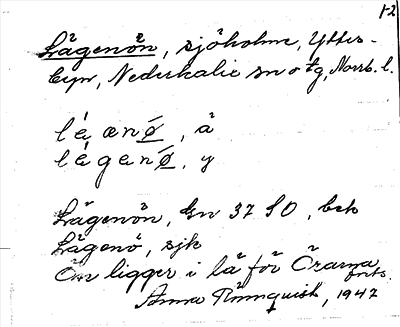 1-2
Lågenön, sjöholme, Ytter-
byn, Nederkalix sn o tg, Norrb. l.
léænø, å
légenø, y
Lågenön, Gn 37 SO, bek
Lågenö, sjk
Ön ligger i lä för Örarna
forts.
Anna Rönnquist, 1947